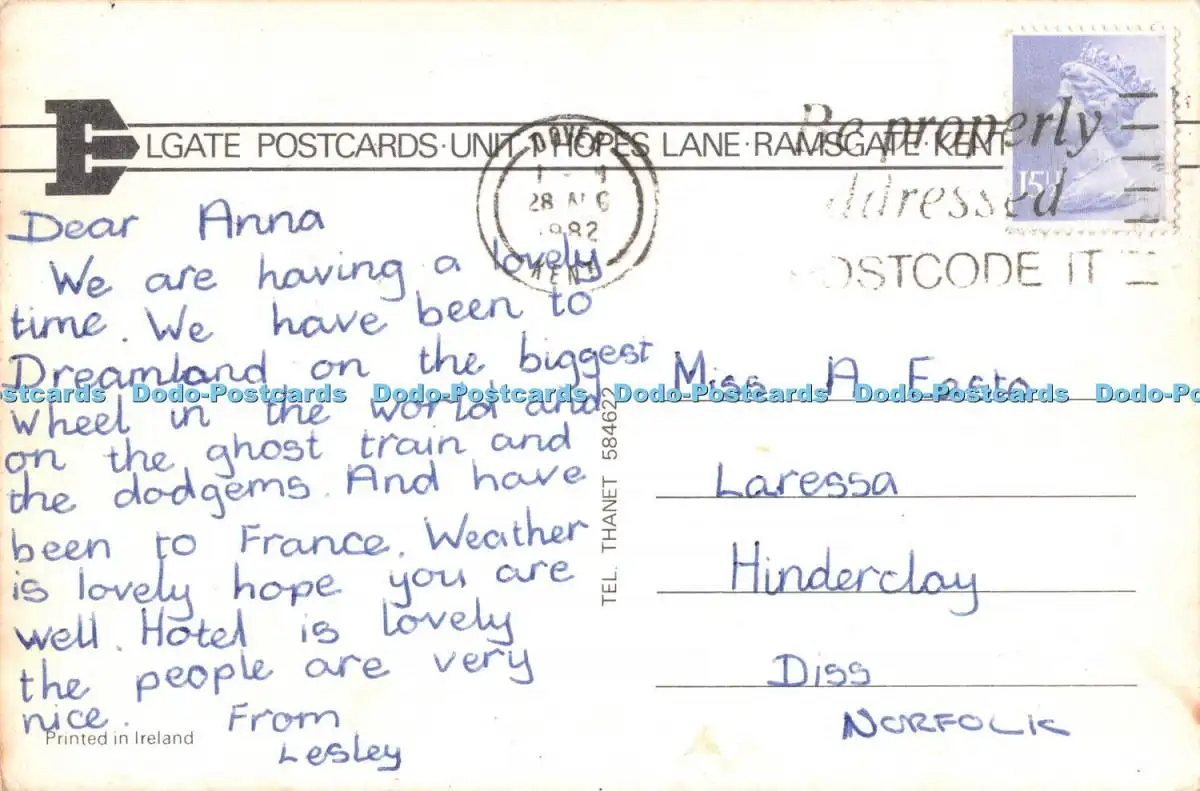 ELGATE POSTCARDS·UNIT HOPES LANE·RAMSGATE·KENT
DOVER
28 AUG
1982
KENT
Be properly
addressed
POSTCODE IT
15½
Dear Anna
We are having a lovely
time. We have been to
Dreamland on the biggest
wheel in the world and
on the ghost train and
the dodgems. And have
been to France. Weather
is lovely hope you are
well. Hotel is lovely
the people are very
nice. From
Lesley
Printed in Ireland
TEL. THANET 584622
Miss A
Laressa
Hinderclay
Diss
NORFOLK
Dodo-Postcards Dodo-Postcards Dodo-Postcards Dodo-Postcards